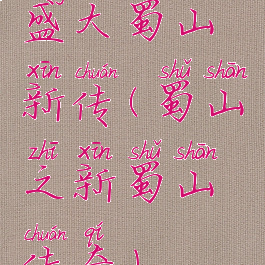 盛大蜀山
xīn chuán shǔ shān
新传(蜀山
zhī xīn shǔ shān
之新蜀山
chuán qí
传奇)